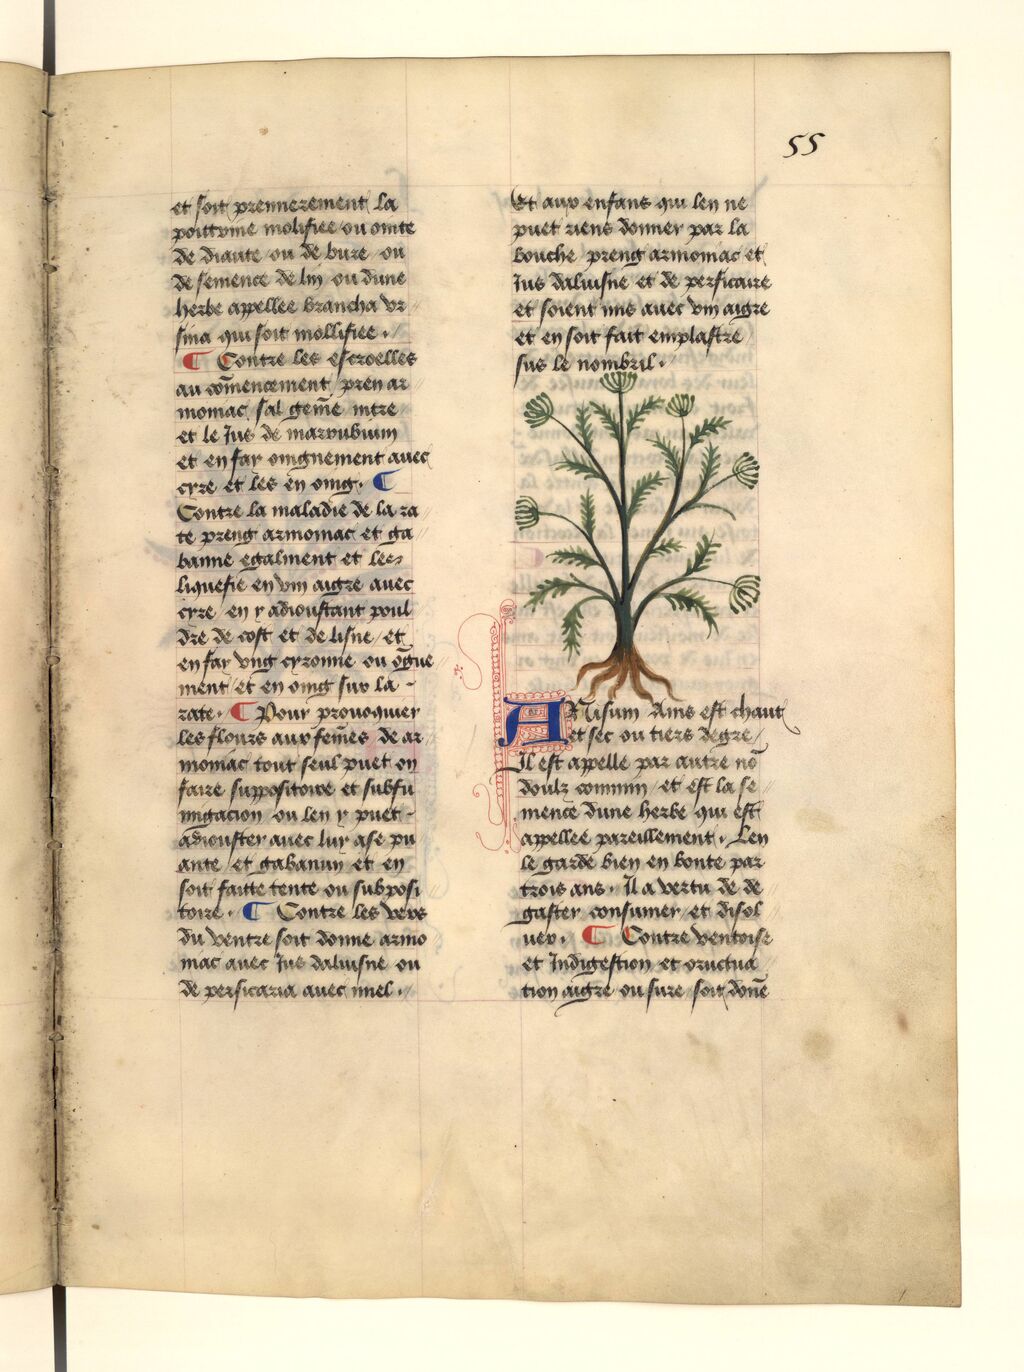 55
et soit premierement la
poittrine molifiee ou ointe
de diaute ou de bure ou
de semence de lin ou dune
herbe appellee brancha vr
sina qui soit mollifiee.
¶ Contre les escroelles
au cõmencement pren ar
moniac sal geme nitre
et le Jus de marrubium
et en fay oingnement auec
cyre et les en oing. ¶
Contre la maladie de la ra
te preng armoniac et ga
banne egalment et les
liquefie en vin aigre auec
cyre en y adioustant poul
dre de cost et de lisne et
en fay vng cyronne ou ogue
ment et en oing sur la
rate. ¶ Pour prouoquier
les flours aux fem̃es de ar
moniac tout seul puet on
faire suppositoire et subfu
migacion ou len y puet
adiouster auec luy ase pu
ante et gabanun et en
soit faitte tente ou subposi
toire. ¶ Contre les vers
du ventre soit donne armo
niac auec Jus daluisne ou
de persicaria auec miel.
Et aux enfans qui len ne
puet riens donner par la
bouche preng armoniac et
Jus daluisne et de persicaire
et soient mis auec vin aigre
et en soit fait emplastre
sus le nombril.
ANisum Anis est chault
et sec ou tiers degre
Il est appelle par autre nõ
doulz commin et est la se
mence dune herbe qui est
appellee pareillement. Len
le garde bien en bonte par
trois ans. Il a vertu de de
gaster consumer et disol
uer. ¶ Contre ventosite
et Indigestion et oructua
tion aigre ou sure soit donẽ